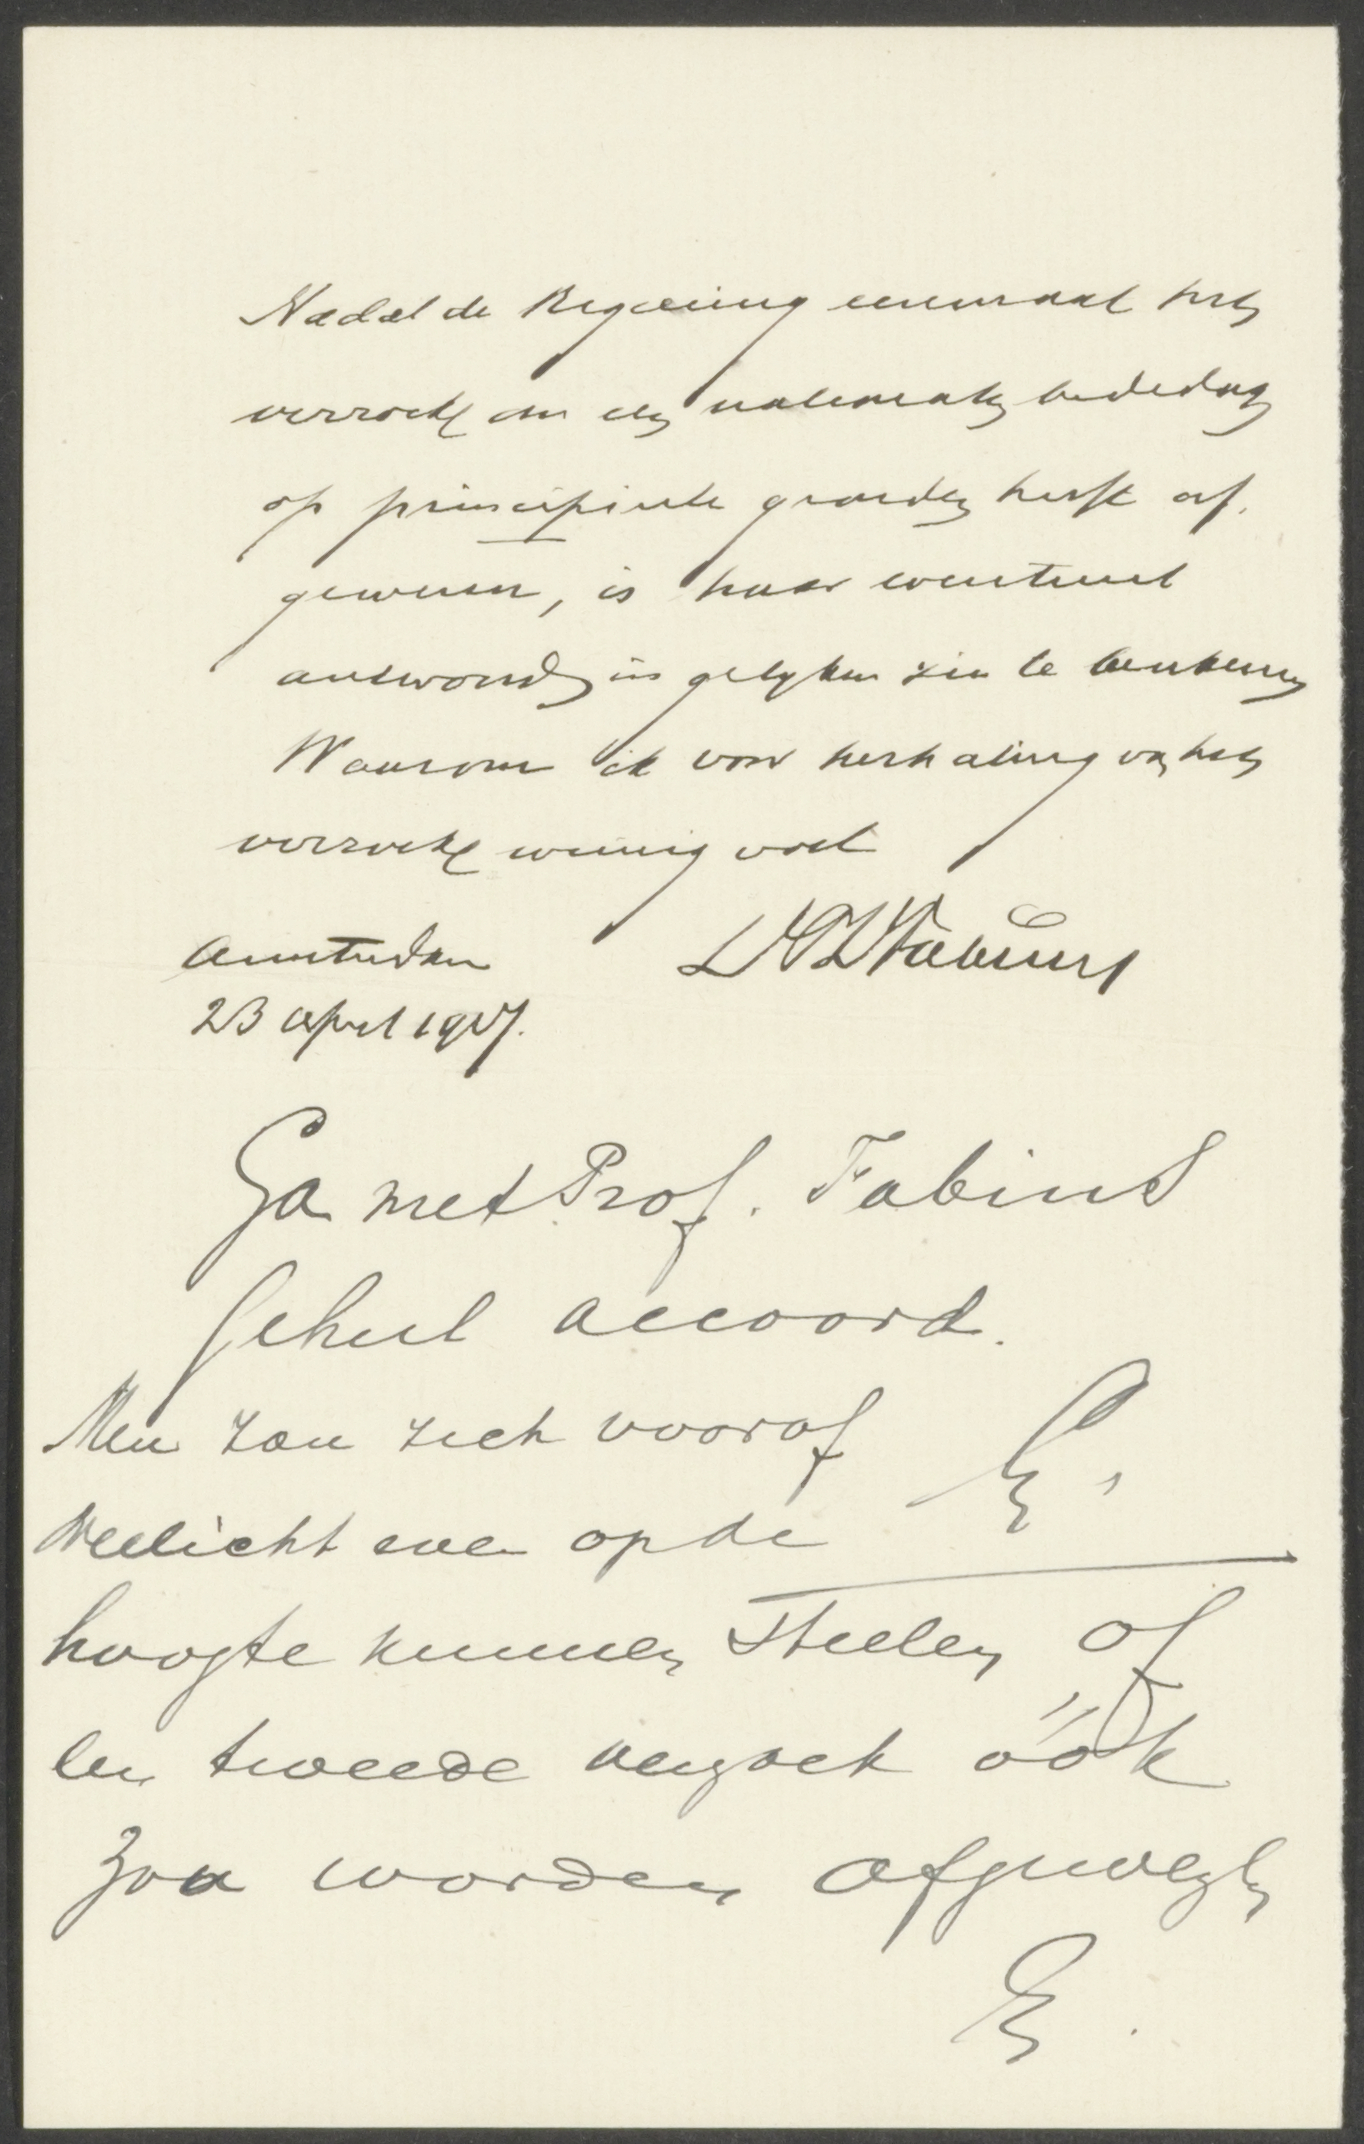 Nadat de Regeering eenmaal het
verzoek om een nationalen bededag
op principieele gronden heeft af-
gewezen, is haar eventueel
antwoord in gelyken zin te
Waarom ik voor herhaling van het
verzoek weinig voel
Amsterdam
DPDFabius
23 April 1917.
Ga met Prof. Fabius
geheel accoord.
E.
Men zou zich vooraf
wellicht even op de
hoogte kunnen stellen of
een tweede verzoek óók
zou worden afgewezen
E.